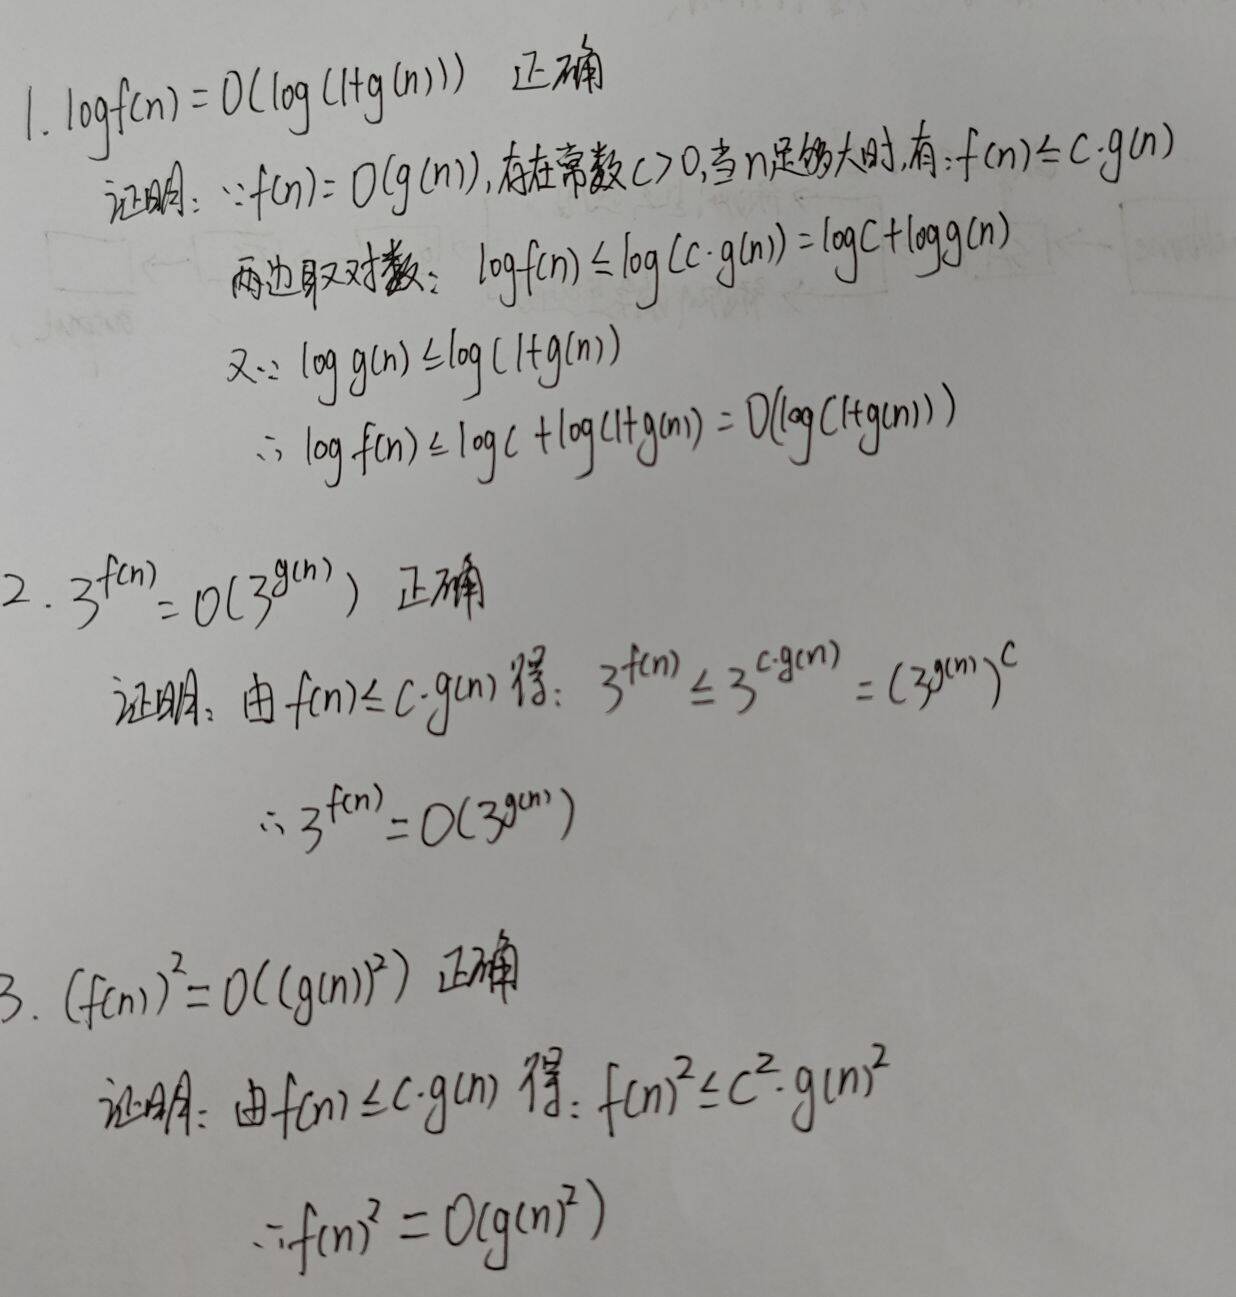 1. logf(n) = O(log(1+g(n))) 正确
证明: ∵f(n) = O(g(n)), 存在常数c>0,当n足够大时,有: f(n) ≤ c·g(n)
两边取对数: logf(n) ≤ log(c·g(n)) = logc+logg(n)
又∵ log g(n) ≤ log(1+g(n))
∴ log f(n) ≤ logc + log(1+g(n)) = O(log(1+g(n)))
2. 3^f(n) = O(3^g(n)) 正确
证明: 由 f(n) ≤ c·g(n) 得: 3^f(n) ≤ 3^c·g(n) = (3^g(n))^c
∴ 3^f(n) = O(3^g(n))
3. (f(n))² = O((g(n))²) 正确
证明: 由 f(n) ≤ c·g(n) 得: f(n)² ≤ c²·g(n)²
∴ f(n)² = O(g(n)²)